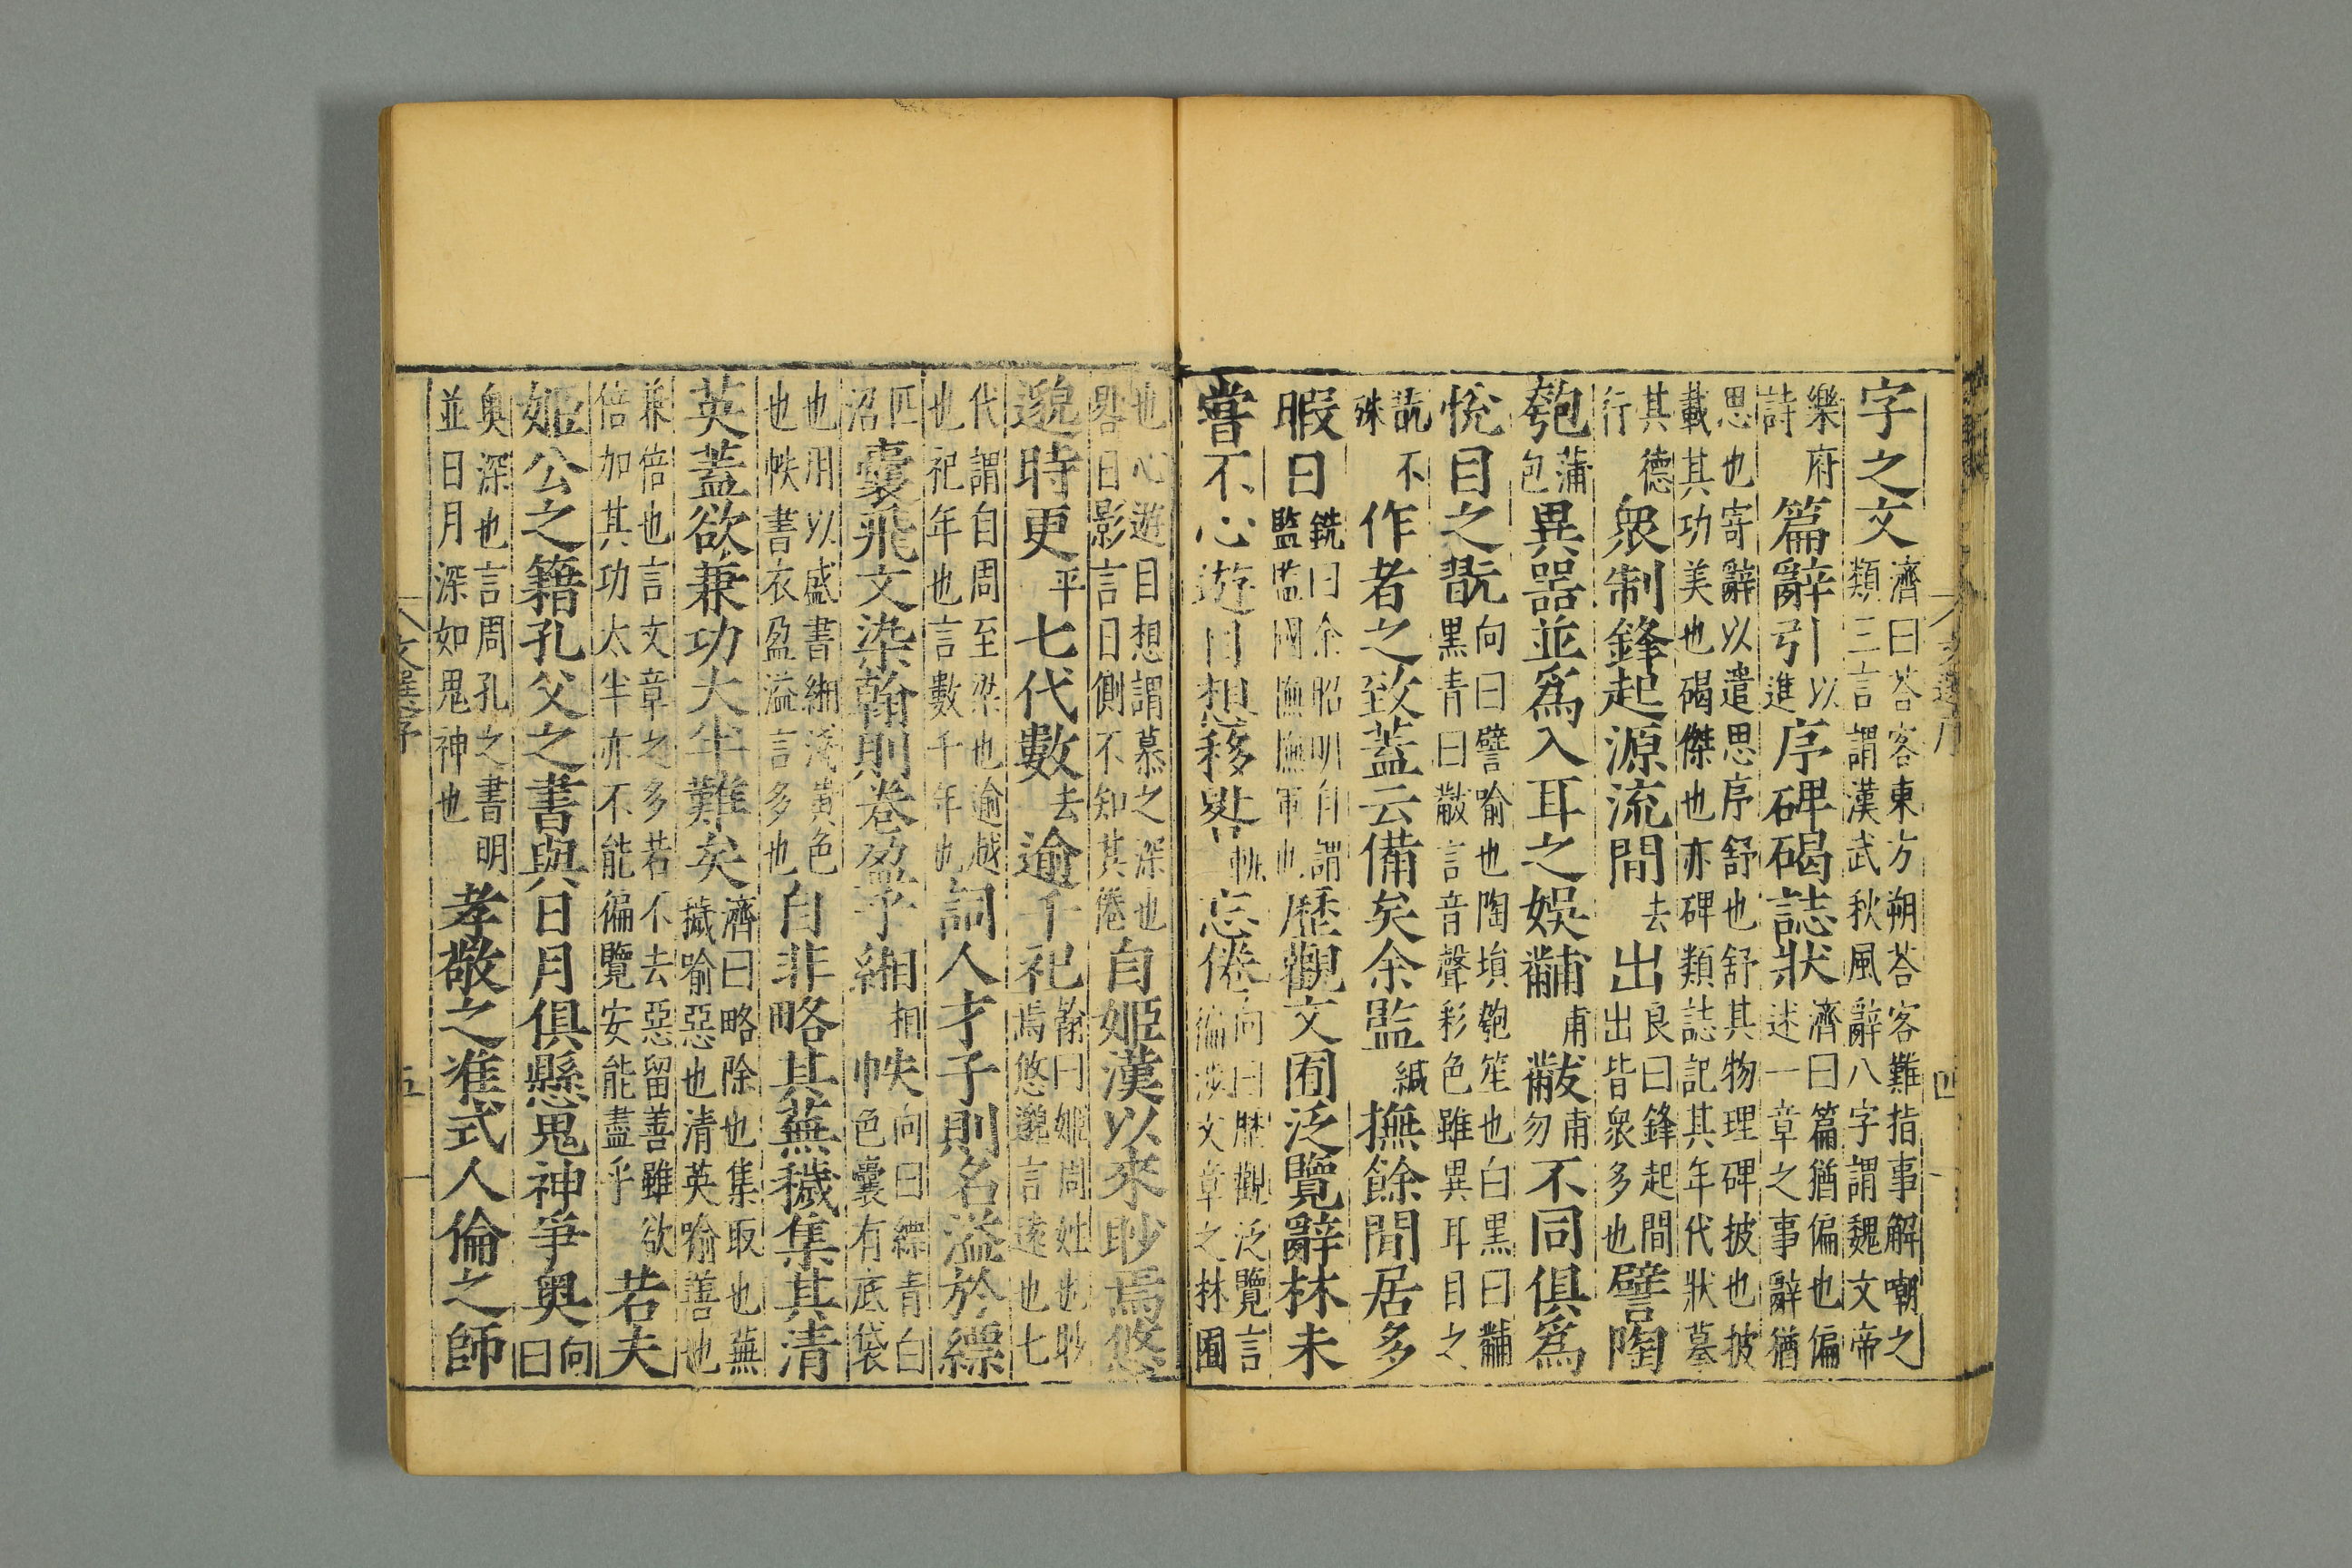 字之文濟曰荅客東方朔荅客難指事解嘲之類三言謂漢武秋風辭八字謂魏文帝
樂府詩篇辭引以進序碑碣誌狀濟曰篇猶偏也偏述一章之事辭猶
思也寄辭以遣思序舒也舒其物理碑披也披載其功美也碣傑也亦碑類誌記其年代狀摹
其德行衆制鋒起源流間去出良曰鋒起間出出皆衆多也譬陶
匏蒲包異器並爲入耳之娛黼甫黻甫勿不同俱爲
悅目之翫向曰譬喻也陶塤匏笙也白黑曰黼黑青曰黻言音聲彩色雖異耳目之
翫不殊作者之致蓋云備矣余監緘撫餘閒居多
暇日銑曰余昭明自謂監監國撫撫軍也歷觀文囿泛覽辭林未
嘗不心遊目想移晷忘倦向曰歷觀泛覽言徧涉文章之林囿
也心遊目想謂慕之深也晷日影言日側不知其倦自姬漢以來眇焉悠
邈時更平七代數去逾千祀翰曰姬周姓也眇焉悠邈言遠也七
代謂自周至梁也逾越也祀年也言數千年也詞人才子則名溢於縹
匹沼囊飛文染翰則卷盈乎緗相帙向曰縹青白色囊有底袋
也用以盛書緗淺黃色也帙書衣盈溢言多也自非略其蕪穢集其清
英蓋欲兼功太半難矣濟曰略除也集取也蕪穢喻惡也清英喻善也
兼倍也言文章之多若不去惡留善雖欲倍加其功太半亦不能徧覽安能盡乎若夫
姬公之籍孔父之書與日月俱懸鬼神爭奧向曰
奧深也言周孔之書明並日月深如鬼神也孝敬之准式人倫之師
文選序
四
文選序
五